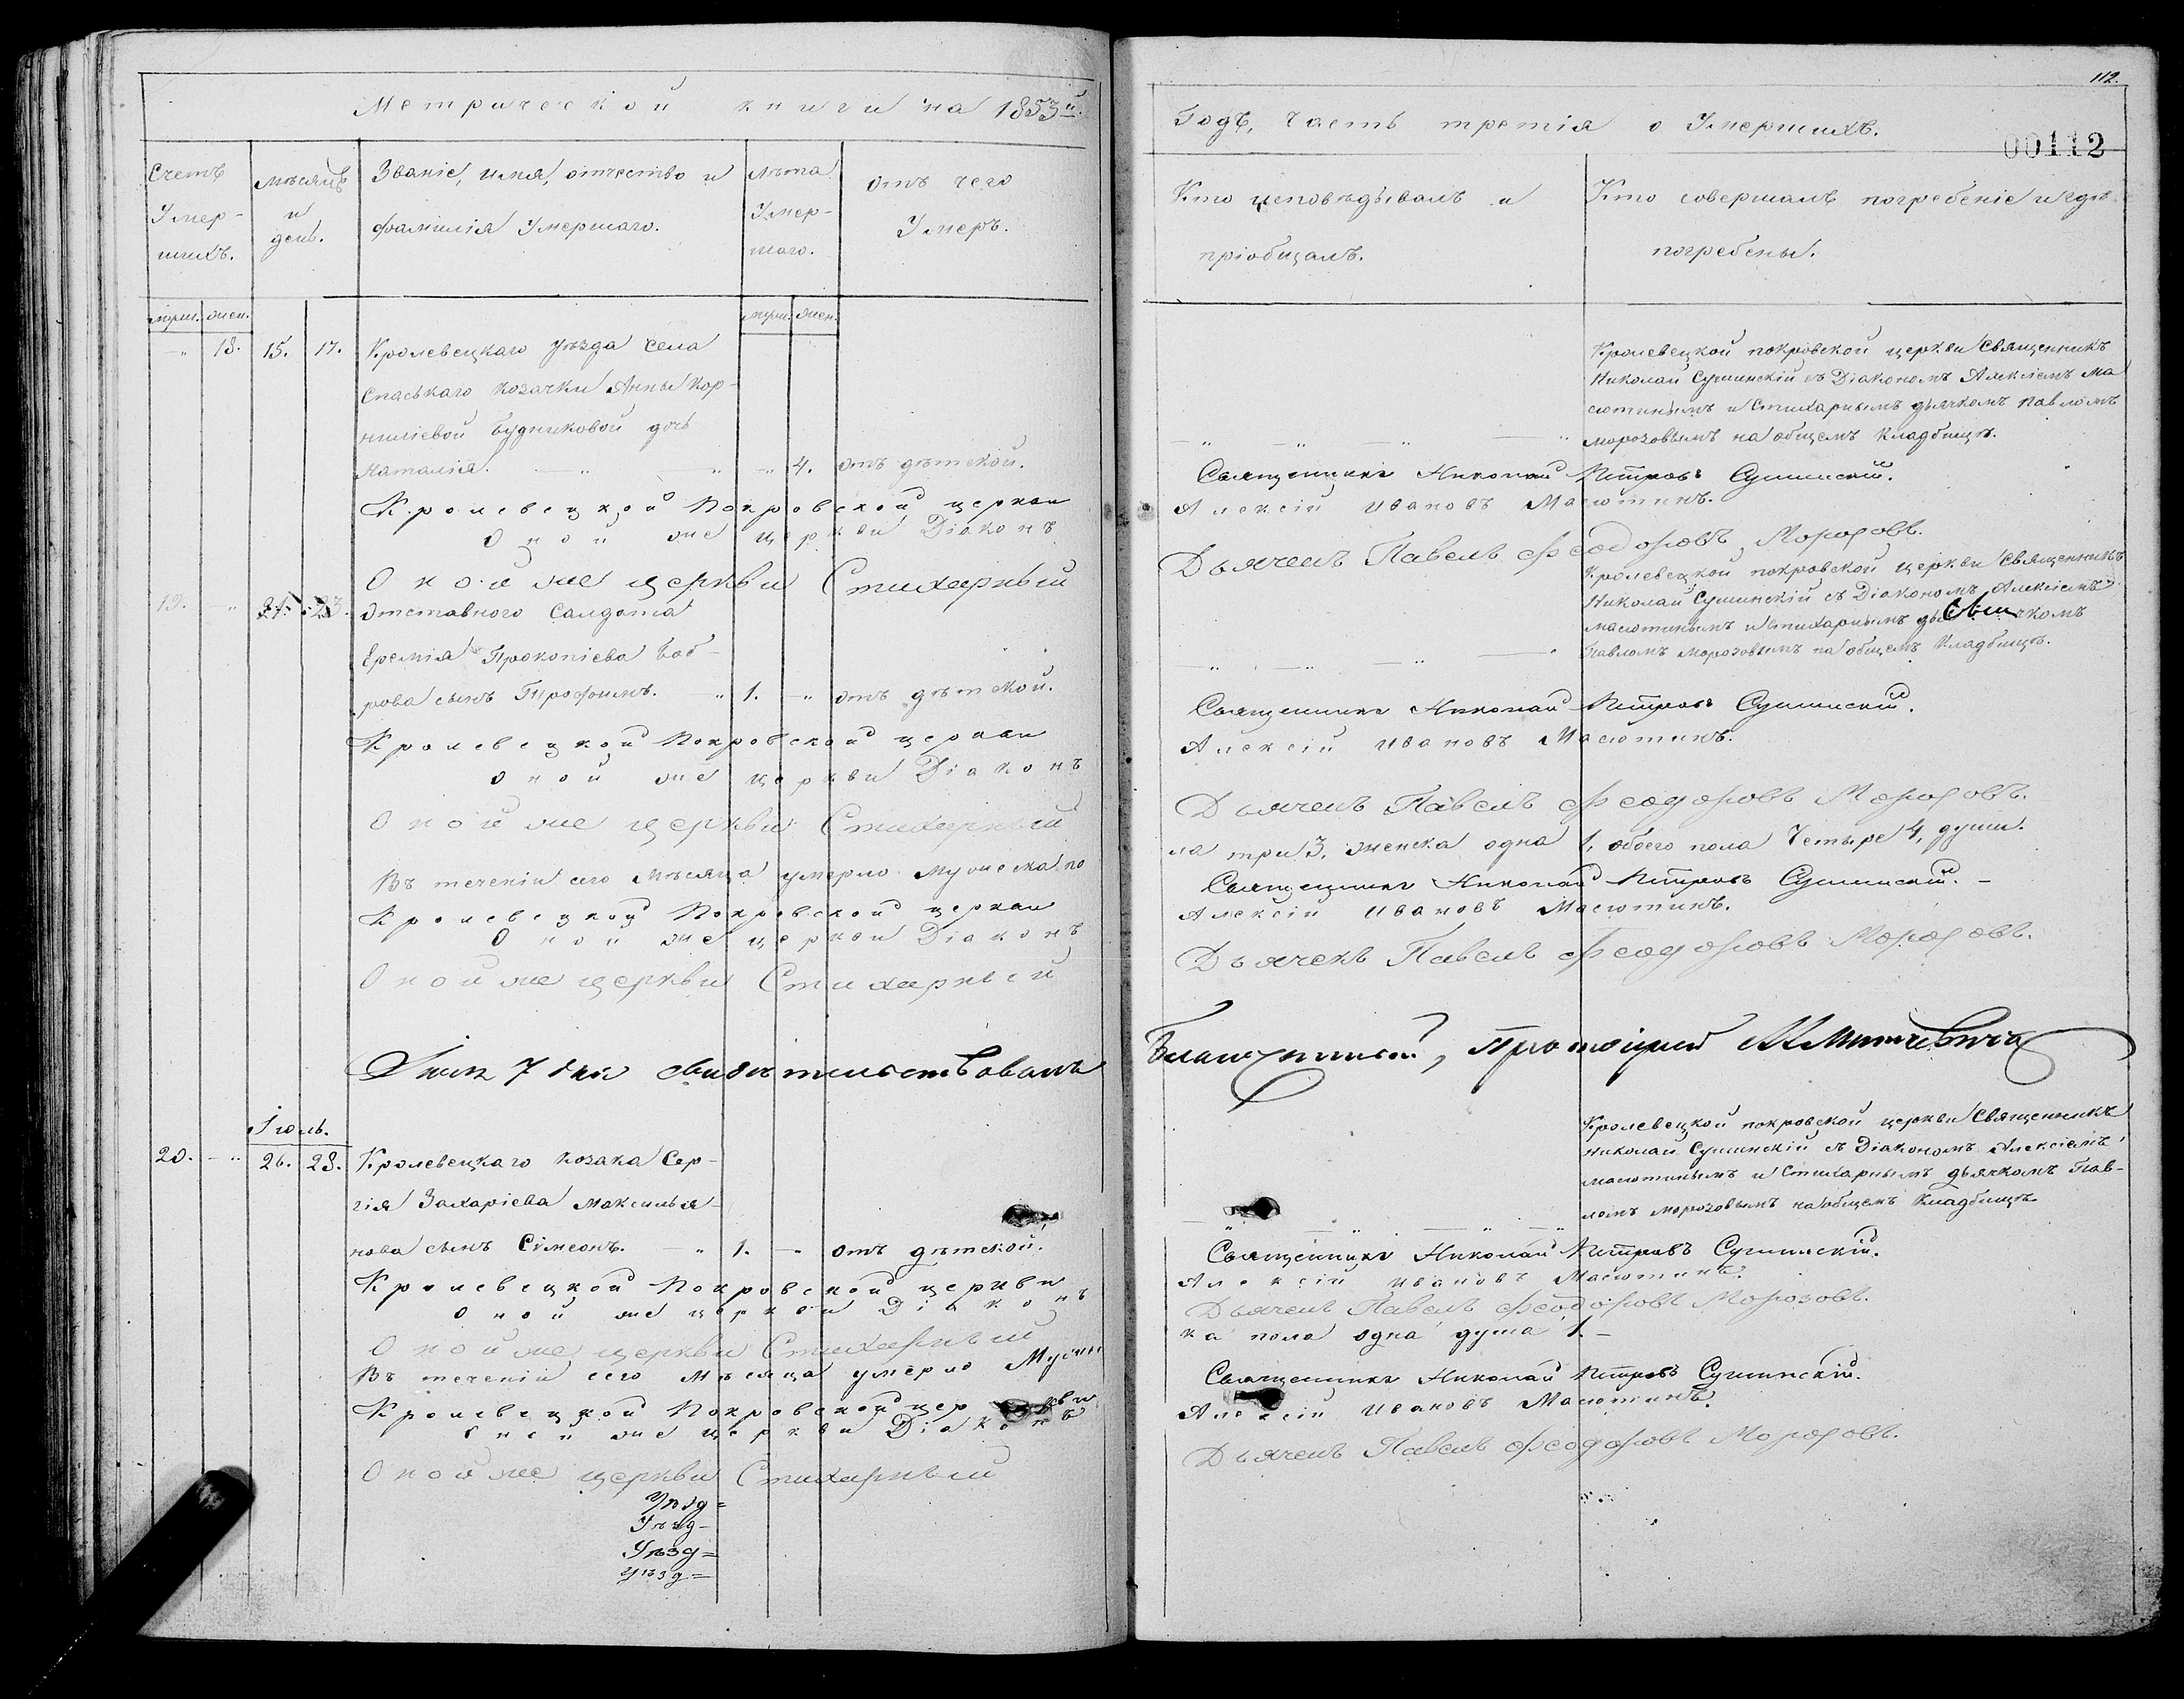 Метрической книги на 1853й.
Счетъ Умер-
шихъ.
Мѣсяцъ и день.
Званіе, имя, отчество и
фамилія Умершаго.
Лѣта Умер-
шаго.
отъ чего Умеръ.
муж. жен.
муж. жен.
—„ 18. 15. 17. Кролевецкаго уѣзда села
Спаськаго козачки Анны Кор-
ниліевой Будниковой дочь
Наталія. —„ —„ —„ 4. отъ дѣтской.
Кролевецкой Покровской церкви
Оной же церкви Діаконъ
Оной же церкви Стихарный
19. „ 21. 23. Отставного Салдата
Еремія Прокопіева Боб-
рова сынъ Трофимъ. —„ 1. —„ отъ дѣтской.
Кролевецкой Покровской церкви
Оной же церкви Діаконъ
Оной же церкви Стихарный
Въ теченіи сего Мѣсяца умерло мужеска по
Кролевецкой Покровской церкви
Оной же церкви Діаконъ
Оной же церкви Стихарный
7 дня свидѣтельствовалъ
Іюль.
20. —„ 26. 28. Кролевецкаго козака Сер-
гія Захаріева Максимья-
нова сынъ Сѵмеонъ. —„ 1. —„ отъ дѣтской.
Кролевецкой Покровской церкви
Оной же церкви Діаконъ
Оной же церкви Стихарный
Въ теченіи сего Мѣсяца умерло Мужи
Кролевецкой Покровской церкви
Оной же церкви Діаконъ
Оной же церкви Стихарный
Уѣзд=
Уѣзд-
Уѣзд=
Уѣзд=
112.
Годъ, часть третія о Умершихъ.
00112
Кто исповѣдывалъ и
пріобщалъ.
Кто совершалъ погребеніе и гдѣ
погребены.
Кролевецкой покровской церкви Священникъ
Николай Сушинскій съ Діакономъ Алексіемъ Ма
сютинымъ и Стихарнымъ дьячкомъ Павломъ
Морозовымъ на общемъ кладбищѣ.
Священникъ Николай Петровъ Сушинскій.
Алексій Ивановъ Масютинъ.
Дьячекъ Павелъ Феодоровъ Морозовъ.
Кролевецкой покровской церкви Священникъ
Николай Сушинскій съ Діакономъ Алексіемъ
Масютинымъ и стихарнымъ дьячкомъ
Павломъ Морозовымъ на общемъ Кладбищѣ.
Священникъ Николай Петровъ Сушинскій.
Алексій Ивановъ Масютинъ.
Дьячекъ Павелъ Феодоровъ Морозовъ.
ла три 3, женска одна 1, обоего пола Четыре 4, души.
Священникъ Николай Петровъ Сушинскій. –
Алексій Ивановъ Масютинъ.
Дьячекъ Павелъ Феодоровъ Морозовъ.
Благочинный, Протоіерей
Кролевецкой покровской церкви Священникъ
Николай Сушинскій съ Діакономъ Алексіемъ
Масютинымъ и Стихарнымъ дьячкомъ Пав-
ломъ Морозовымъ на общемъ Кладбищѣ.
Священникъ Николай Петровъ Сушинскій.
Алексій Ивановъ Масютинъ.
Дьячекъ Павелъ Феодоровъ Морозовъ.
ка пола одна душа 1.–
Священникъ Николай Петровъ Сушинскій.
Алексій Ивановъ Масютинъ.
Дьячекъ Павелъ Феодоровъ Морозовъ.